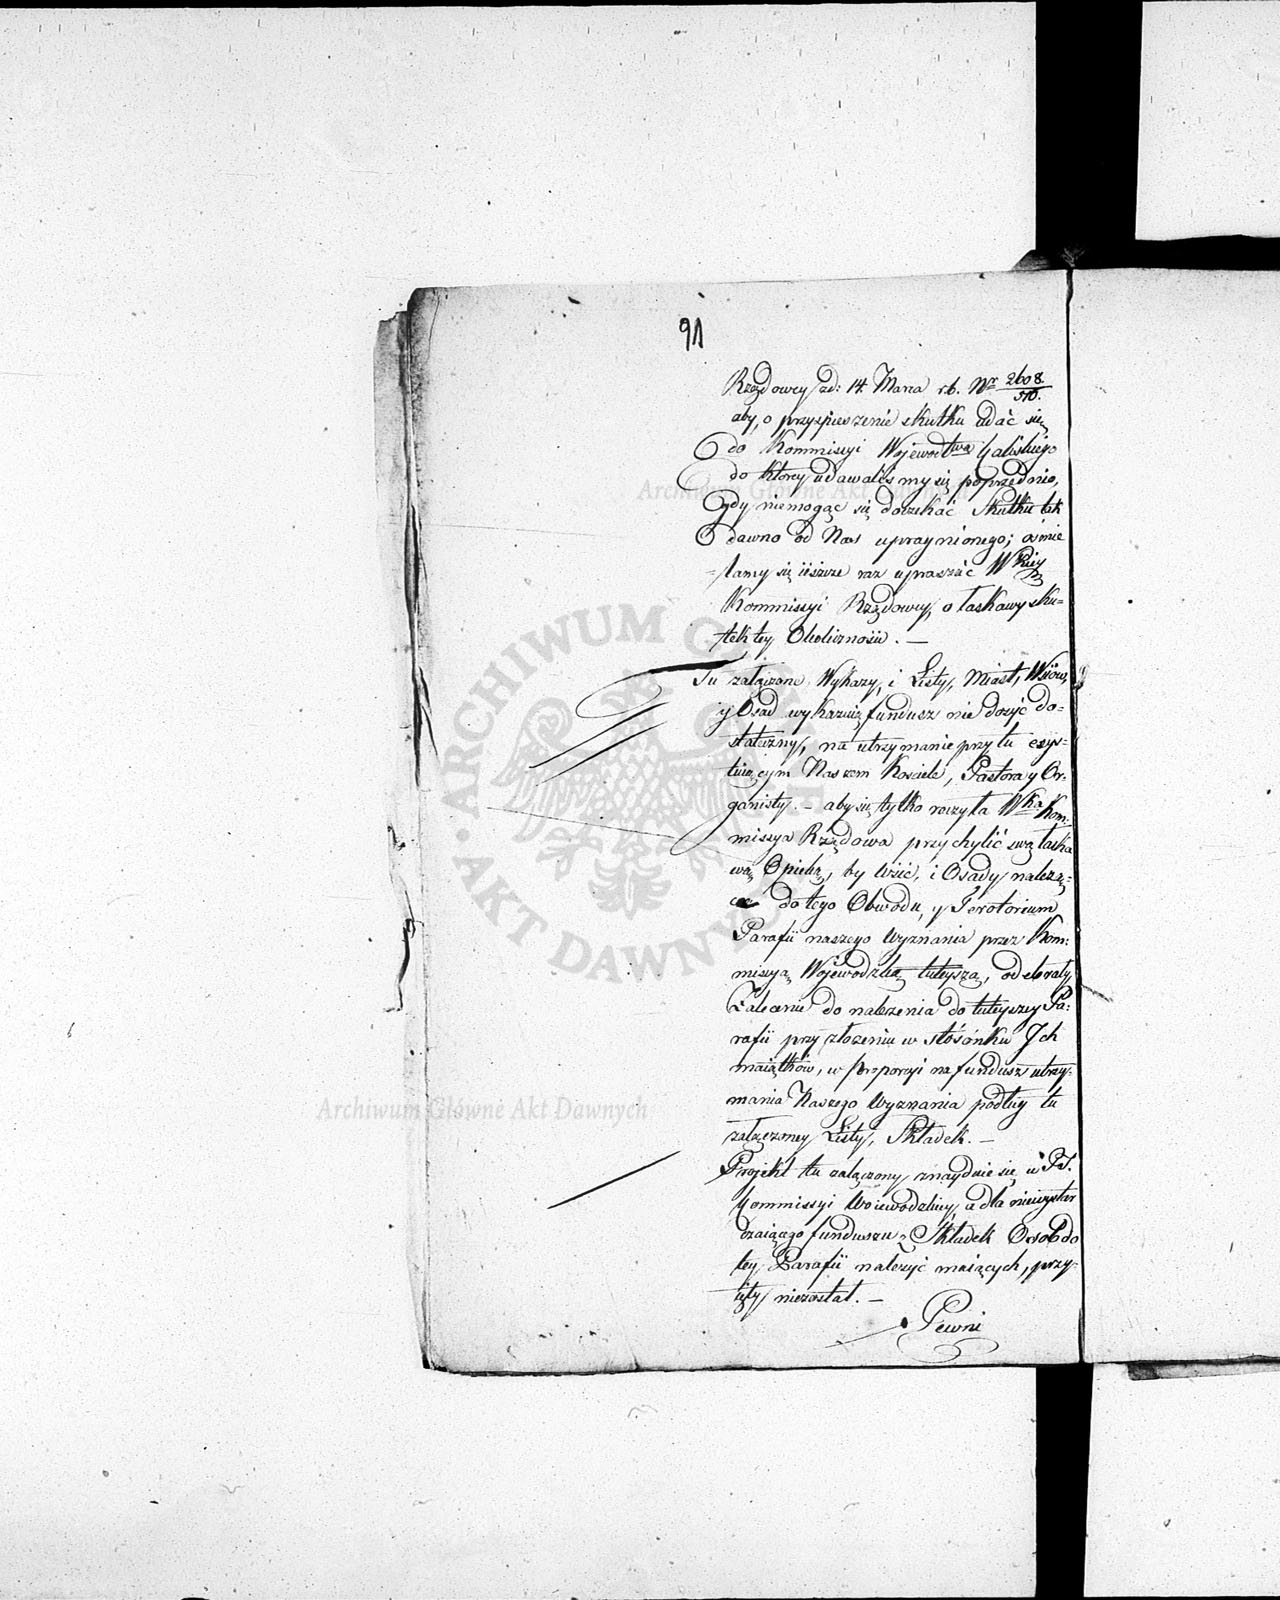 91
Rządowey zd: 14. Marca r.b. Nr 2608/510.
aby, o przyspieszenie skutku udać się
do Kommissyi Wojewodtwa Kaliskiego
do ktorey udawaliśmy się poprzednio,
gdy niemogąc się doczekać Skutku tak
dawno od Nas upragnionego; ośmie
=lamy się ieszcze raz upraszać WKiey
Kommissyi Rządowey, o łaskawy sku=
tek tey Okoliczności. —
Tu załączone Wykazy, i Listy, Miast, Wsiów,
y Osad wykazuią fundusz nie dosyć do=
stateczny, na utrzymanie przy tu exys=
tuiącym Naszem Kościele, Pastora y Or=
ganisty. — aby się tylko raczyła Wka Kom=
missya Rządowa przychylić swą łaska
wą Opieką, by Wsie, i Osady należą=
ce do tego Obwodu, y Terotorium
Parafii naszego Wyznania przez Kom=
missyą Wojewodzką tuteyszą, odebrały
Zalecenie do należenia do tuteyszey Pa=
rafii przy złożeniu w stósónku Jch
maiątków, w proporcyi na fundusz utrzy=
mania Naszego Wyznania podług tu
załączoney Listy, Składek. —
Projekt tu załączony znayduie się w Pś.
Kommissyi Woiewodzkiey, a dla niewystar
czaiącego funduszu z Składek Osob do
tey Parafii należyć maiących, przy=
ięty niezostał. —
Pewni
Archiwum Główne Akt Dawnych
ARCHIWUM GŁÓWNE
AKT DAWNYCH
Archiwum Główne Akt Dawnych